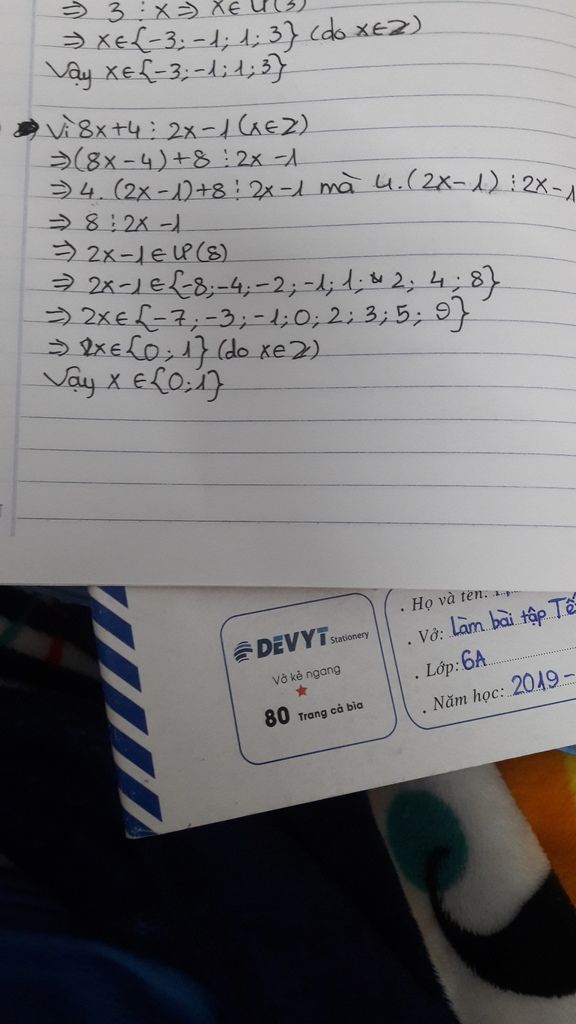 ⇒ 3 ⋮ x ⇒ x∈Ư(3)
⇒ x∈{-3; -1; 1; 3} (do x∈Z)
Vậy x∈{-3; -1; 1; 3}
⇒ Vì 8x+4 ⋮ 2x-1 (x∈Z)
⇒(8x-4)+8 ⋮ 2x-1
⇒ 4.(2x-1)+8 ⋮ 2x-1 mà 4.(2x-1) ⋮ 2x-1
⇒ 8 ⋮ 2x-1
⇒ 2x-1∈Ư(8)
⇒ 2x-1∈{-8; -4; -2; -1; 1; 2; 4; 8}
⇒ 2x∈{-7; -3; -1; 0; 2; 3; 5; 9}
⇒ x∈{0; 1} (do x∈Z)
Vậy x ∈{0; 1}
DEVYT Stationery
Vở kẻ ngang
80 Trang cả bìa
. Họ và tên:
. Vở: Làm bài tập Tế
. Lớp: 6A
. Năm học: 2019-